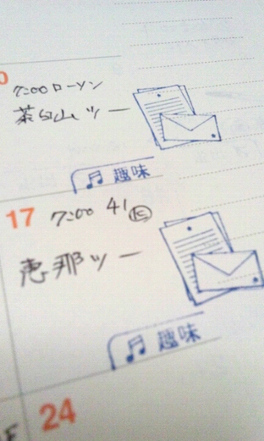 0
7:00 ローソン
茶臼山ツー
♫ 趣味
17 7:00 41
恵那ツー
♫ 趣味
24